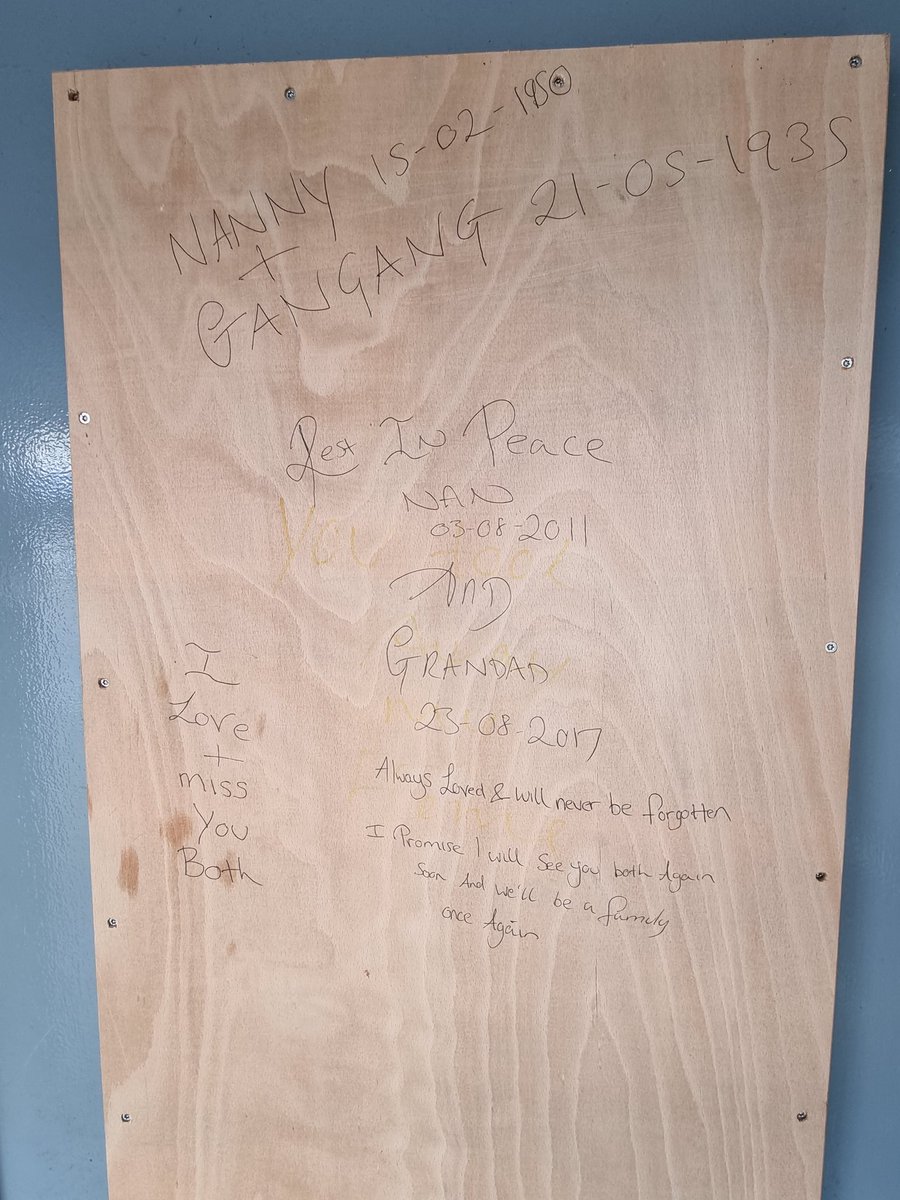 NANNY 15-02-1950
+
GANGANG 21-05-1935
Rest In Peace
NAN
03-08-2011
You took
AND
GRANDAD
23-08-2017
I
Love
+
miss
You
Both
Always Loved & will never be forgotten
I Promise I will See you both Again
Soon And we'll be a family
once Again